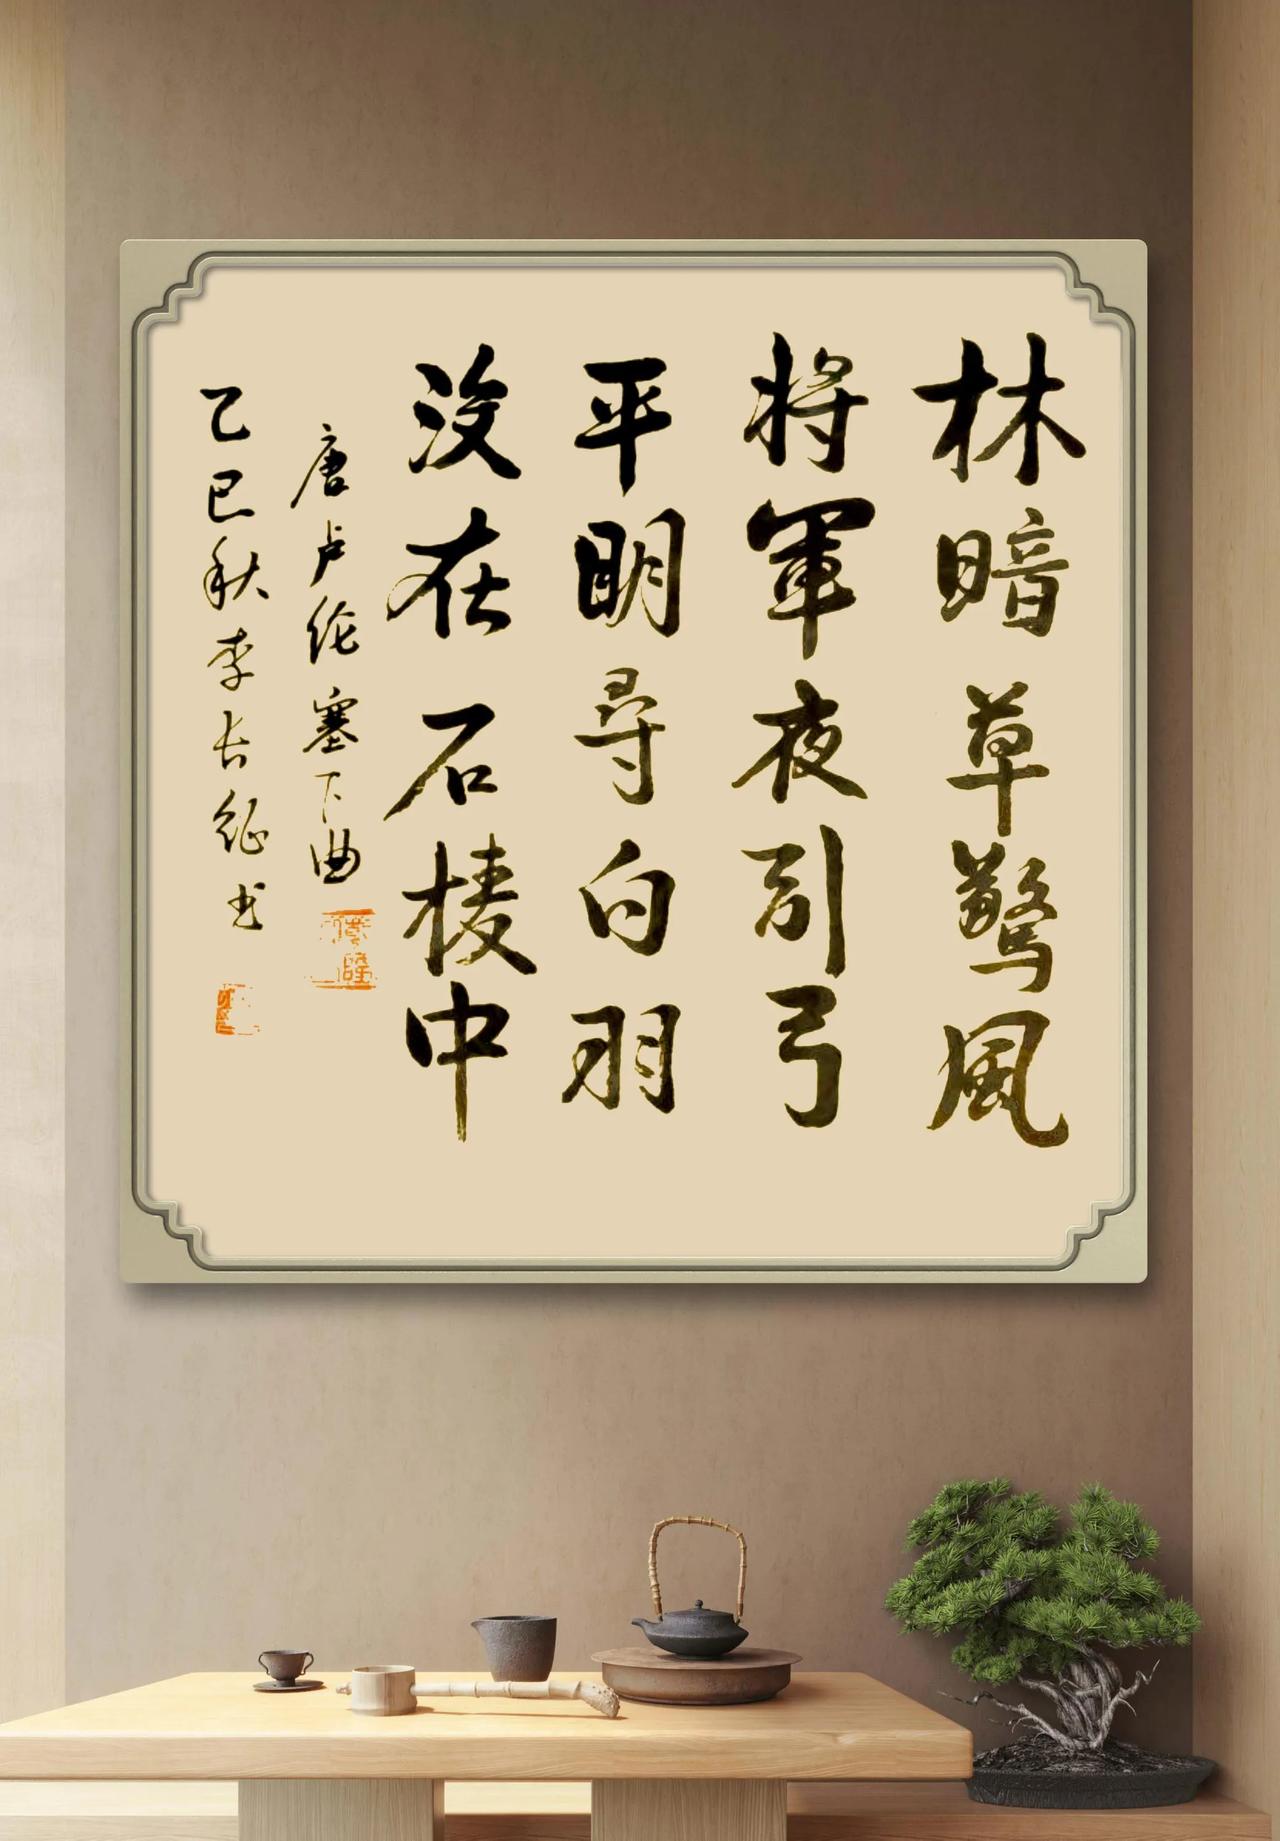 林暗草驚風
將軍夜引弓
平明尋白羽
没在石棱中
唐卢伦塞下曲
乙巳秋李长征书